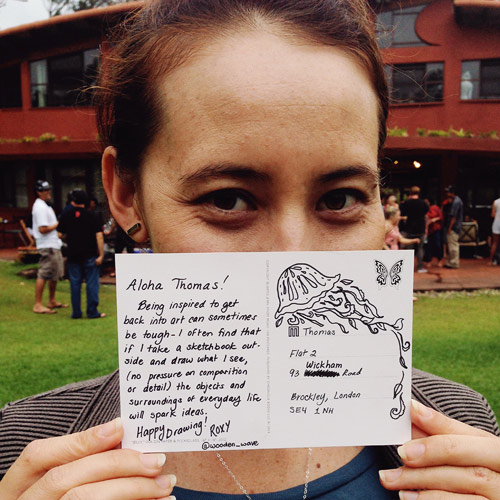 Aloha Thomas!
Being inspired to get
back into art can sometimes
be tough-I often find that
if I take a sketchbook out-
side and draw what I see,
(no pressure on composition
or detail) the objects and
surroundings of everyday life
will spark ideas.
Happy Drawing!
ROXY
@wooden_wave
Thomas
Flat 2
Wickham
93 Road
Brockley, London
SE4 1NH